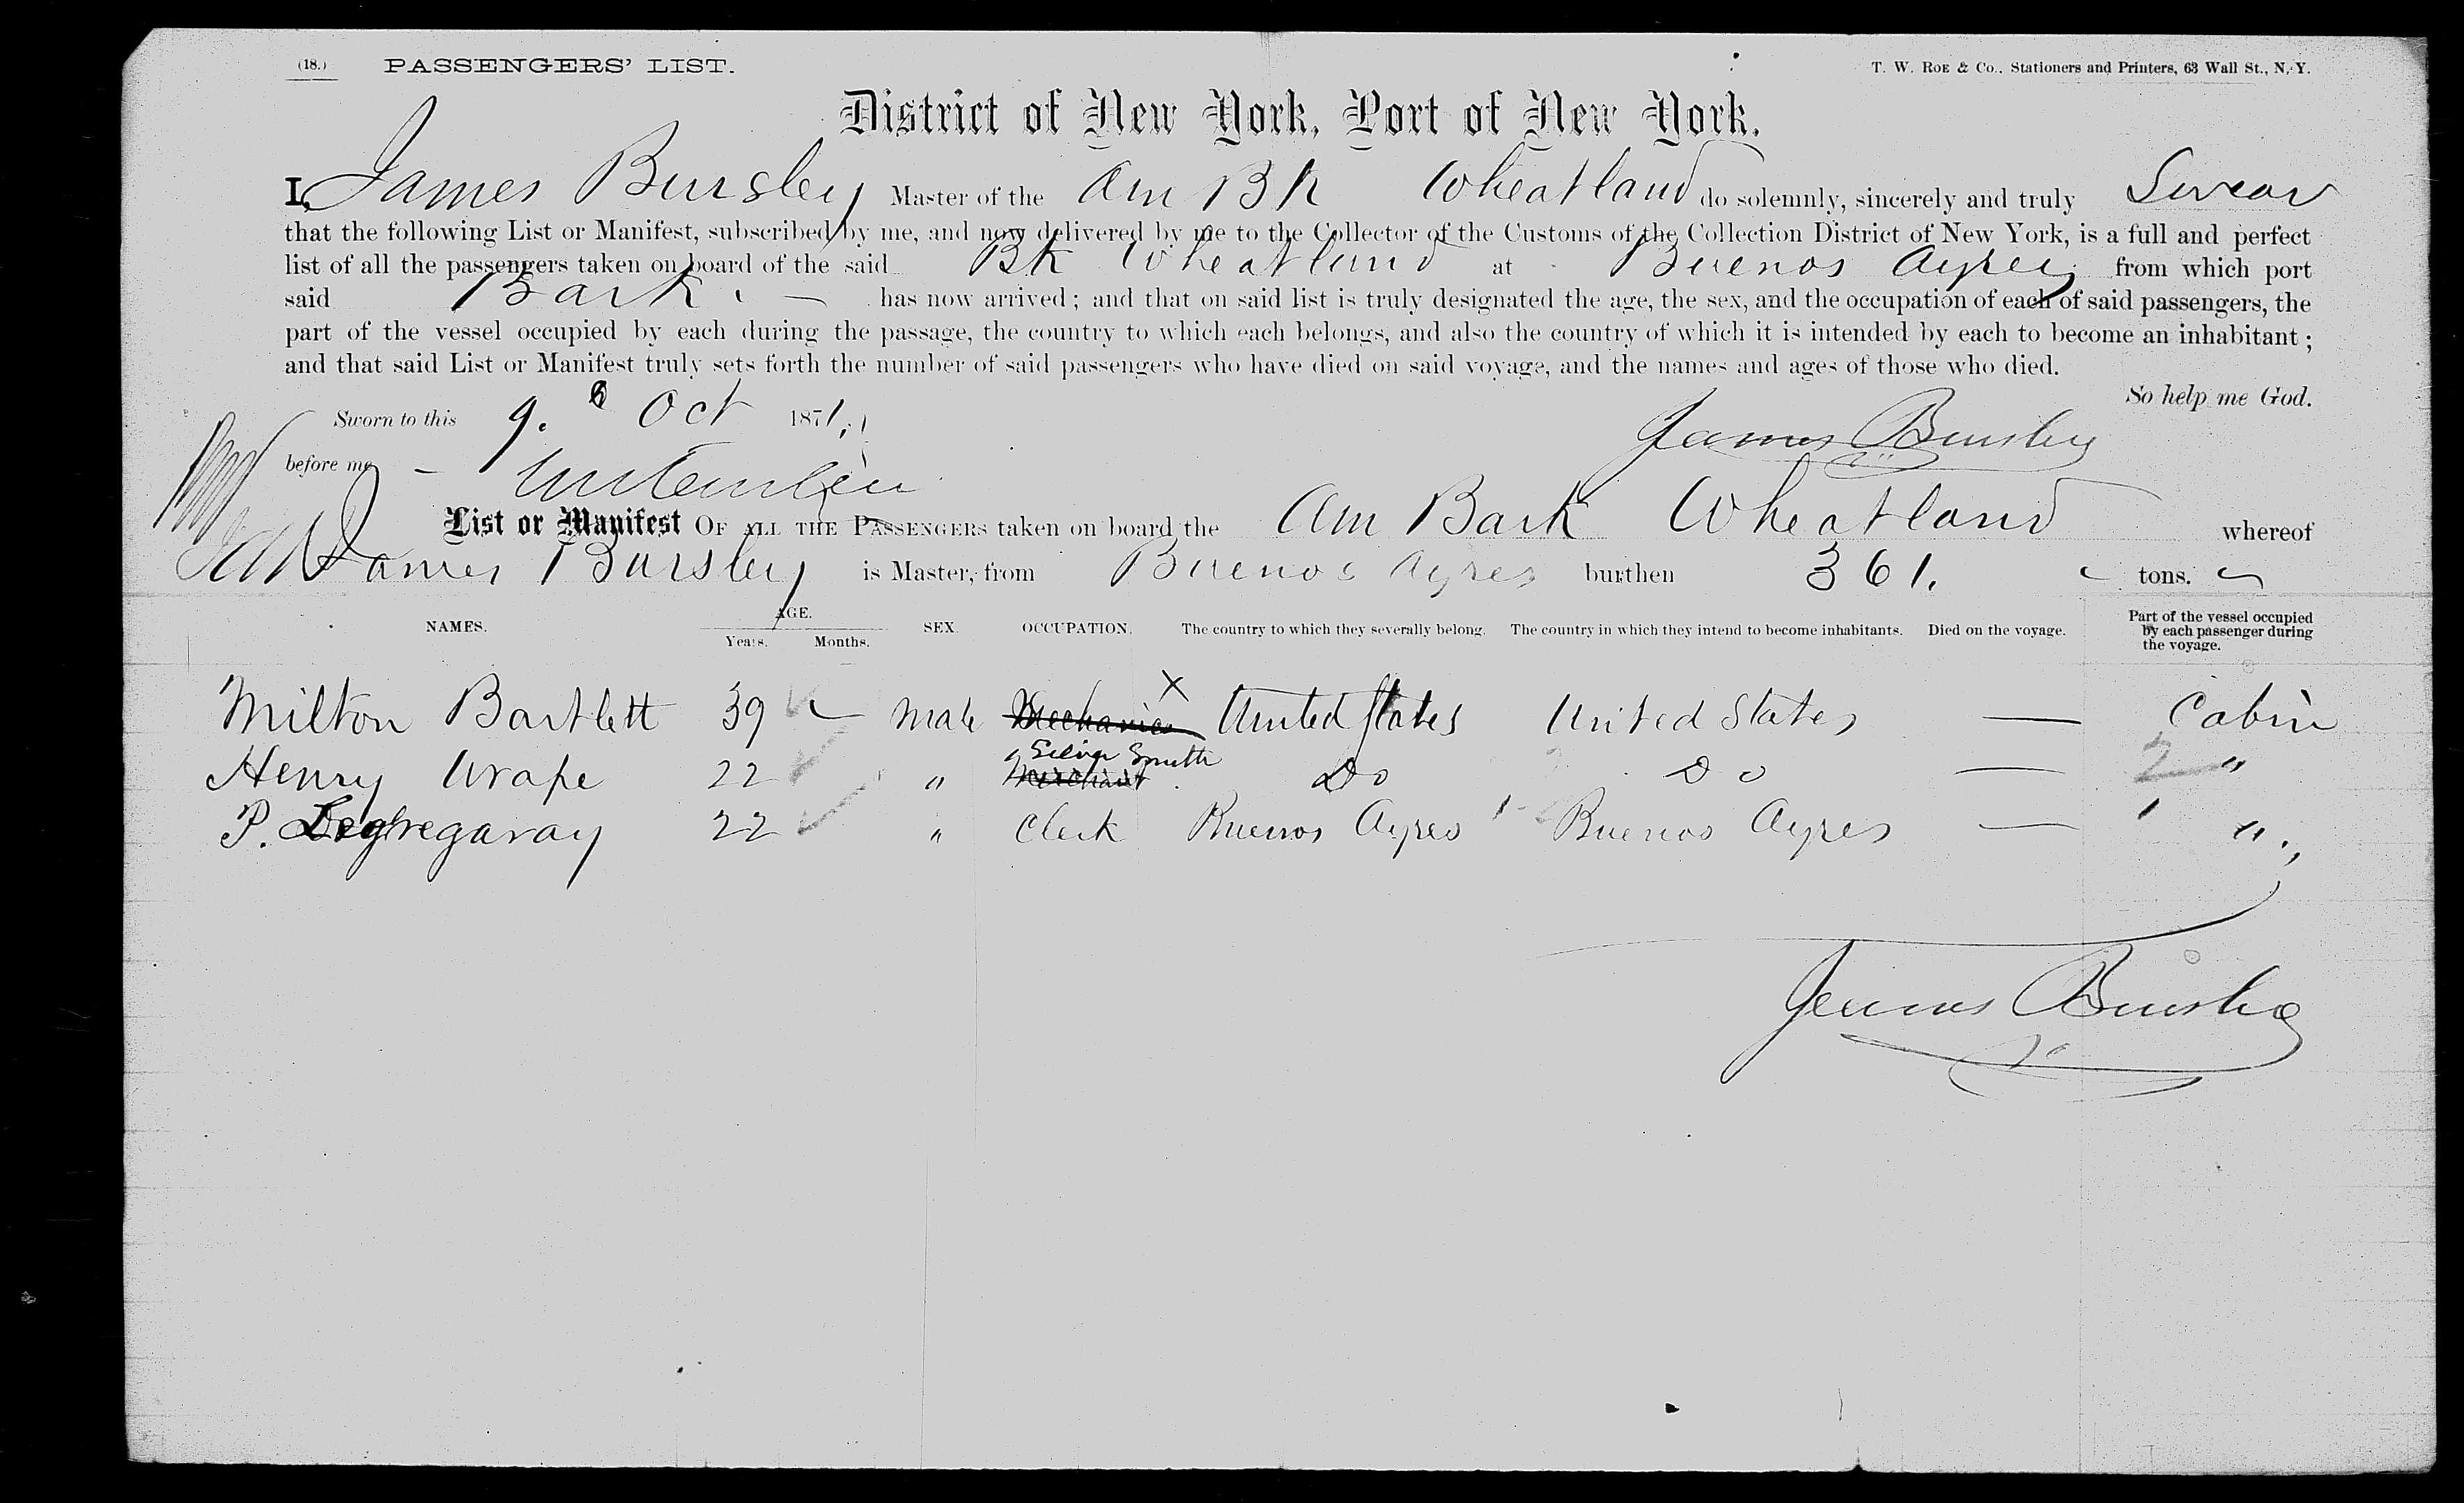 (18.) PASSENGERS' LIST. T. W. ROE & Co., Stationers and Printers, 63 Wall St., N. Y.
District of New York, Port of New York.
I, James Bursley Master of the Am Bk Wheatland do solemnly, sincerely and truly Swear
that the following List or Manifest, subscribed by me, and now delivered by me to the Collector of the Customs of the Collection District of New York, is a full and perfect
list of all the passengers taken on board of the said Bk Wheatland at Buenos Ayres from which port
said Bark has now arrived; and that on said list is truly designated the age, the sex, and the occupation of each of said passengers, the
part of the vessel occupied by each during the passage, the country to which each belongs, and also the country of which it is intended by each to become an inhabitant;
and that said List or Manifest truly sets forth the number of said passengers who have died on said voyage, and the names and ages of those who died.
So help me God.
Sworn to this 9. Oct 1871,
James Bursley
before me
List or Manifest OF ALL THE PASSENGERS taken on board the Am Bark Wheatland whereof
James Bursley is Master, from Buenos Ayres burthen 361. tons.
NAMES. AGE. Years. Months. SEX. OCCUPATION. The country to which they severally belong. The country in which they intend to become inhabitants. Died on the voyage. Part of the vessel occupied by each passenger during the voyage.
Milton Bartlett 39 male Mechanic X United States United States — Cabin
Henry Wrape 22 " Merchant Silver Smith Do Do — 2 "
P. 22 " Clerk Buenos Ayres 1 Buenos Ayres — 1 "
James Bursley